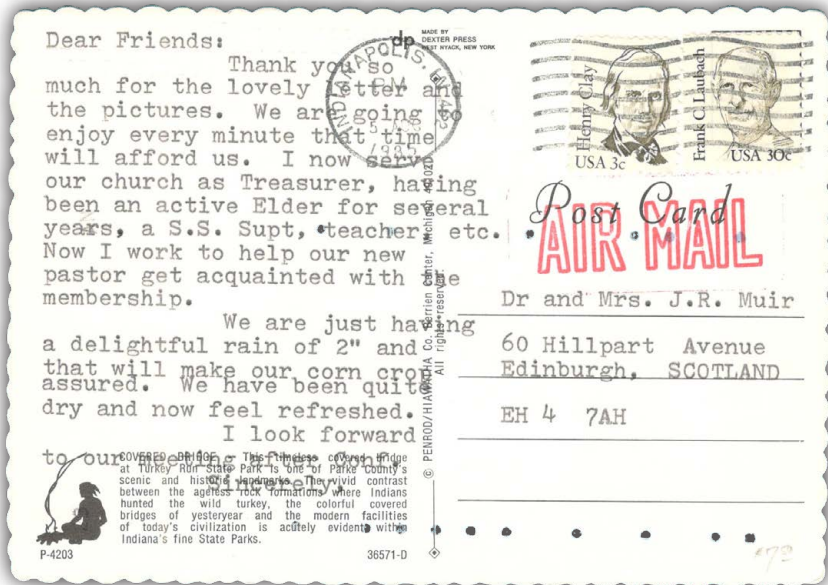 Dear Friends:
Thank you so
much for the lovely letter and
the pictures. We are going to
enjoy every minute that time
will afford us. I now serve
our church as Treasurer, having
been an active Elder for several
years, a S.S. Supt, teacher, etc.
Now I work to help our new
pastor get acquainted with the
membership.
We are just having
a delightful rain of 2" and
that will make our corn crop
assured. We have been quite
dry and now feel refreshed.
I look forward
to our meeting after Conf.
Sincerely,
COVERED BRIDGE — This timeless covered bridge
at Turkey Run State Park is one of Parke County's
scenic and historic landmarks. The vivid contrast
between the ageless rock formations where Indians
hunted the wild turkey, the colorful covered
bridges of yesteryear and the modern facilities
of today's civilization is acutely evident within
Indiana's fine State Parks.
P-4203
36571-D
dp
MADE BY
DEXTER PRESS
WEST NYACK, NEW YORK
INDIANAPOLIS,
PM
1985
© PENROD/HIAWATHA Co. Berrien Center, Michigan
All rights reserved.
Henry Clay
USA 3c
Frank C. Laubach
USA 30c
Post Card
AIR MAIL
Dr and Mrs. J.R. Muir
60 Hillpart Avenue
Edinburgh, SCOTLAND
EH 4 7AH